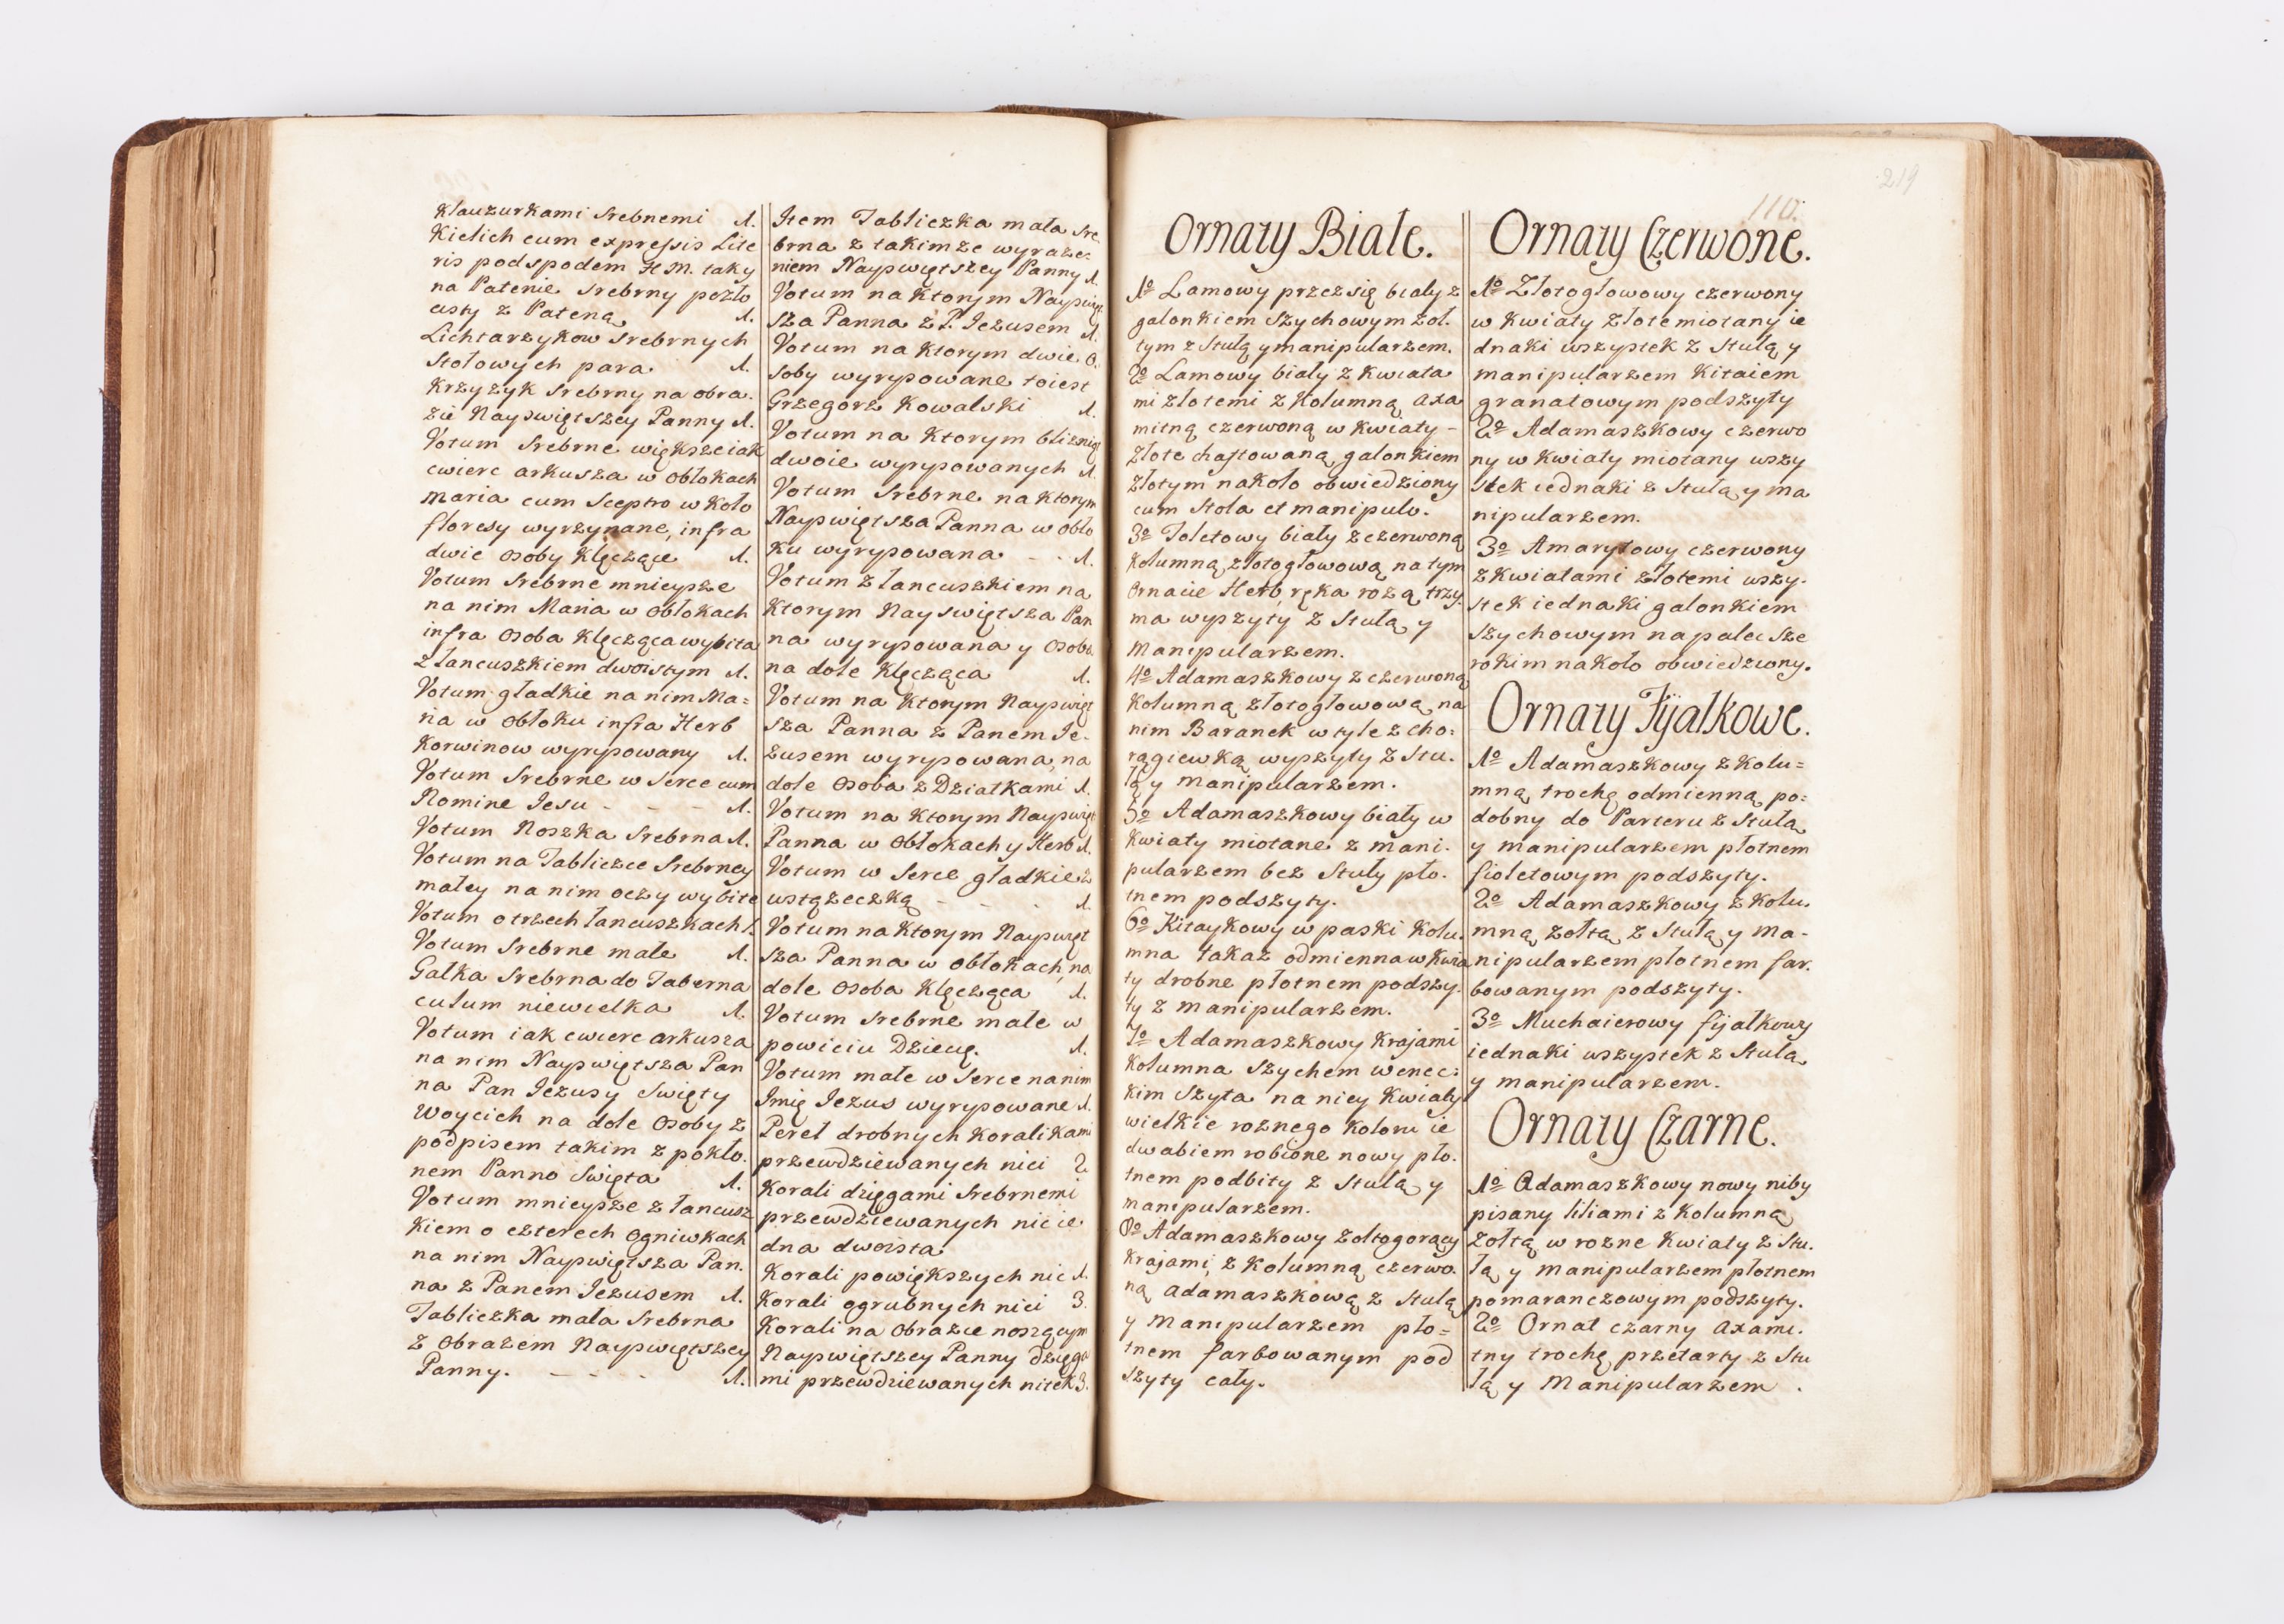 Klauzurkami Srebnemi 1.
Kielich cum expressis Lite
ris pod spodem H M. taky
na Patenie Srebrny pozło
cisty z Pateną 1.
Lichtarzykow Srebrnych
Stołowych para 1.
Krzyzyk Srebrny na obra.
zie Nayswiętszey Panny 1.
Votum Srebrne większe iak
cwierc arkusza w obłokach
Maria cum Sceptro w koło
floresy wyrzynane, infra
dwie osoby klęczące 1.
Votum Srebrne mnieysze
na nim Maria w obłokach
infra osoba klęcząca wybita
z łancuszkiem dwoistym 1.
Votum gładkie na nim Ma=
ria w obłoku infra Herb
Korwinow wyrysowany 1.
Votum Srebrne w Serce cum
Nomine Iesu - - - 1.
Votum Noszka Srebrna 1.
Votum na Tabliczce Srebrney
małey na nim oczy wybite
Votum o trzech łancuszkach 1.
Votum Srebrne małe 1.
Gałka Srebrna do Taberna
culum niewielka 1.
Votum iak cwierc arkusza
na nim Nayswiętsza Pan
na Pan Iezus y Swięty
Woyciech na dole Osoby z
podpisem takim z pokło.
nem Panno Swięta 1.
Votum mnieysze z łancusz
kiem o czterech ogniwkach
na nim Nayswiętsza Pan.
na z Panem Iezusem 1.
Tabliczka mała Srebrna
z Obrazem Nayswiętszey
Panny. - - - - 1.
Item Tabliczka mała Sre
brna z takimze wyraze=
niem Nayswiętszey Panny 1.
Votum na ktorym Nayswięt
sza Panna z P. Iezusem 1.
Votum na ktorym dwie o.
soby wyrysowane toiest
Grzegorz Kowalski 1.
Votum na ktorym bliźniąt
dwoie wyrysowanych 1.
Votum Srebrne na ktorym
Nayswiętsza Panna w obło
ku wyrysowana - - 1.
Votum z łancuszkiem na
ktorym Nayswiętsza Pan
na wyrysowana y osoba
na dole klęcząca 1.
Votum na ktorym Nayswięt
sza Panna z Panem Ie-
zusem wyrysowana, na
dole Osoba z Dziatkami 1.
Votum na ktorym Nayswięt
Panna w obłokach y Herb 1.
Votum w Serce gładkie z
wstązeczką - - - 1.
Votum na ktorym Nayswięt
sza Panna w obłokach, na
dole Osoba klęcząca 1.
Votum Srebrne małe w
powiciu Dziecię. 1.
Votum małe w Serce na nim
Imię Iezus wyrysowane 1.
Pereł drobnych koralikami
przewdziewanych nici 2
Korali dzięgami Srebrnemi
przewdziewanych nic ie
dna dwoista
Korali powiększych nic 1.
Korali ogrubnych nici 3.
Korali na Obrazie noszącym
Nayswiętszey Panny dzięga
mi przewdziewanych nitek 3.
219
110.
Ornaty Białe.
1o Lamowy przez się biały z
galonkiem szychowym żoł.
tym z Stułą y manipularzem.
2o Lamowy biały z kwiata
mi złotemi z kolumną axa
mitną czerwoną w kwiaty -
złote chaftowaną, galonkiem
złotym na koło obwiedziony
cum Stola et manipulo.
3o Toletowy biały z czerwoną
kolumną złotogłowową, na tym
Ornacie Herb, ręka rozą trzy.
ma wyszyty z Stułą y
Manipularzem.
4o Adamaszkowy z czerwoną
kolumną złotogłowową na
nim Baranek w tyle z cho=
rągiewką wyszyty z Stu.
łą y manipularzem.
5o Adamaszkowy biały w
kwiaty miotane z mani.
pularzem bez Stuły pło.
tnem podszyty.
6o Kitaykowy w paski kolu.
mna takaż odmienna w kwia
ty drobne płotnem podszy.
ty z manipularzem.
7o Adamaszkowy krajami
kolumna szychem wenec=
kim szyta na niey kwiaty
wielkie roznego koloru ie
dwabiem robione nowy pło.
tnem podbity z Stułą y
manipularzem.
8o Adamaszkowy zołtogorący
krajami, z kolumną czerwo.
ną adamaszkową z Stułą
y Manipularzem pło=
tnem farbowanym pod
szyty cały.
Ornaty Czerwone.
1o Złotogłowowy czerwony
w kwiaty złote miotany ie
dnaki wszystek z Stułą y
manipularzem kitaiem
granatowym podszyty
2o Adamaszkowy czerwo
ny w kwiaty miotany wszy
stek iednaki z Stułą y ma
nipularzem.
3o Amarysowy czerwony
z kwiatami złotemi wszy.
stek iednaki galonkiem
szychowym na palec sze
rokim na koło obwiedziony.
Ornaty Fijałkowe.
1o Adamaszkowy z kolu=
mną trochę odmienną, po=
dobny do Parteru z Stułą
y manipularzem płotnem
fioletowym podszyty.
2o Adamaszkowy z kolu.
mną żołtą z Stułą y ma-
nipularzem płotnem far.
bowanym podszyty.
3o Muchaierowy fijałkowy
iednaki wszystek z Stułą
y manipularzem.
Ornaty Czarne.
1o Adamaszkowy nowy niby
pisany liliami z kolumną
żołtą w rozne kwiaty z Stu.
łą y manipularzem płotnem
pomaranczowym podszyty.
2o Ornat czarny axami.
tny trochę przetarty z Stu
łą y Manipularzem .